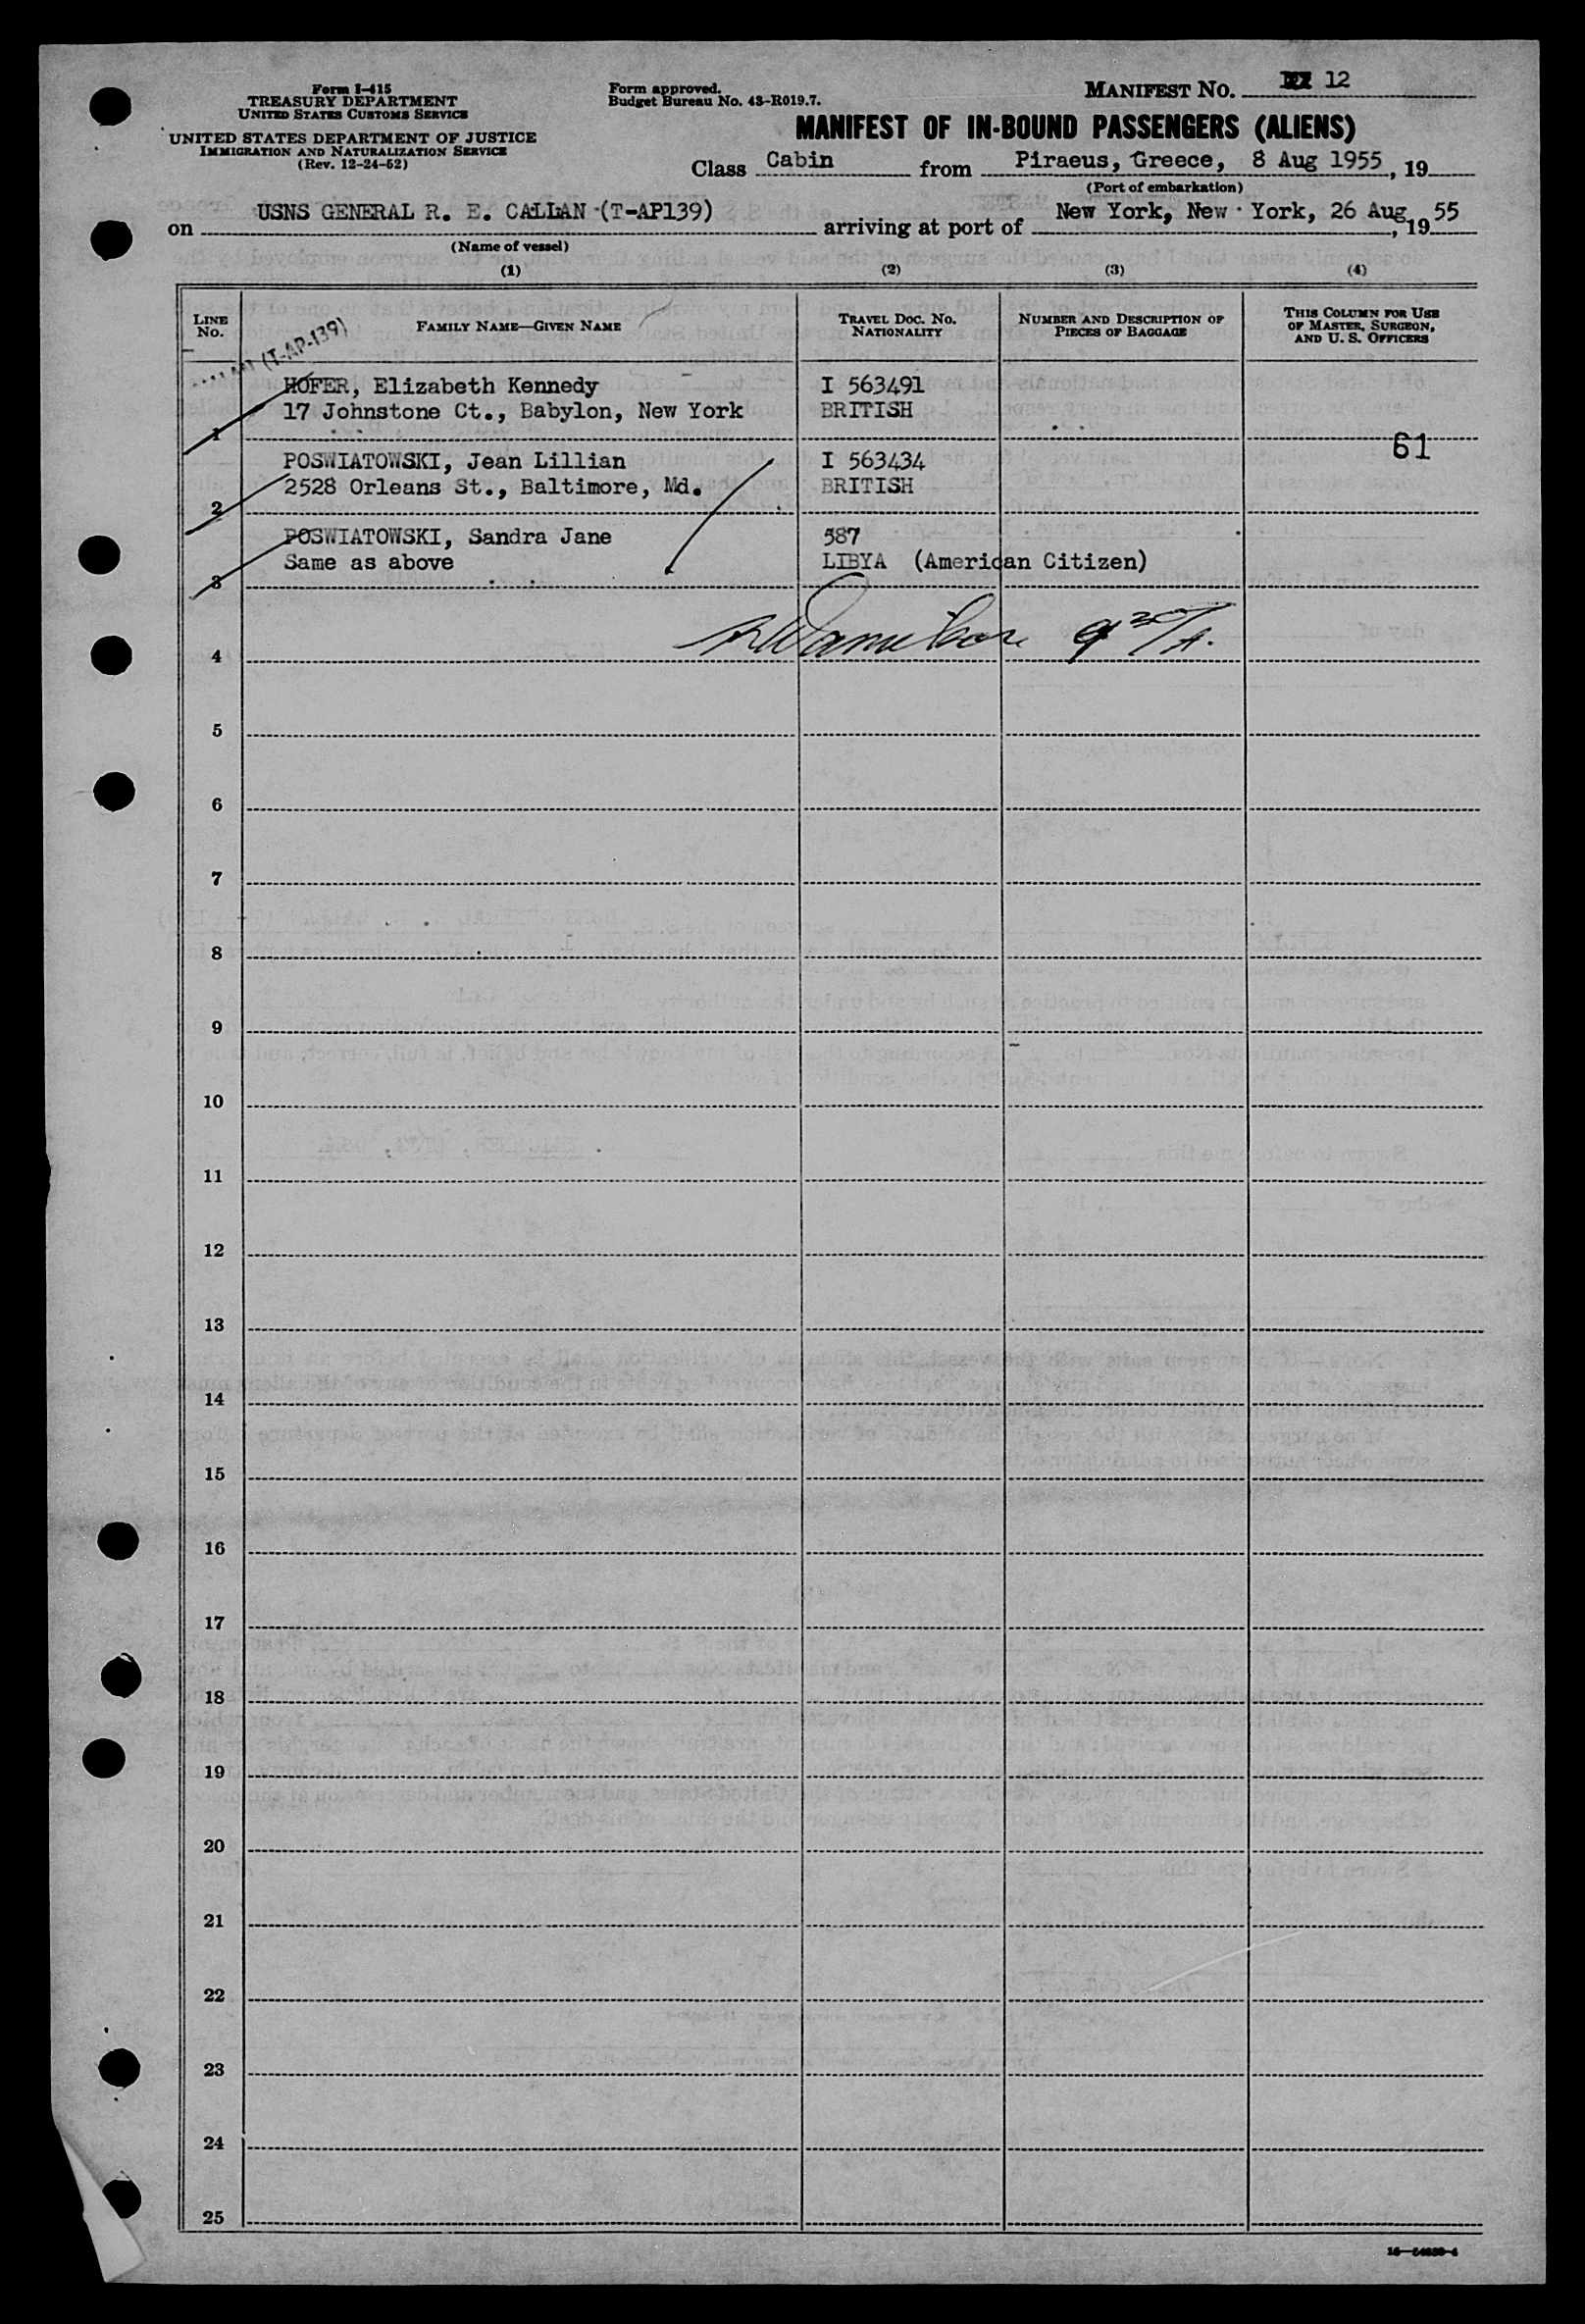 Form I-415
TREASURY DEPARTMENT
UNITED STATES CUSTOMS SERVICE
UNITED STATES DEPARTMENT OF JUSTICE
IMMIGRATION AND NATURALIZATION SERVICE
(Rev. 12-24-52)
Form approved.
Budget Bureau No. 43-R019.7.
MANIFEST NO. 12
MANIFEST OF IN-BOUND PASSENGERS (ALIENS)
Class Cabin from Piraeus, Greece, 8 Aug 1955, 19
(Port of embarkation)
on USNS GENERAL R. E. CALLAN (T-AP139) arriving at port of New York, New York, 26 Aug, 1955
(Name of vessel)
(1) (2) (3) (4)
LINE NO. FAMILY NAME—GIVEN NAME TRAVEL DOC. NO. NATIONALITY NUMBER AND DESCRIPTION OF PIECES OF BAGGAGE THIS COLUMN FOR USE OF MASTER, SURGEON, AND U. S. OFFICERS
(T-AP-139)
HOFER, Elizabeth Kennedy I 563491
17 Johnstone Ct., Babylon, New York BRITISH
1
61
POSWIATOWSKI, Jean Lillian I 563434
2528 Orleans St., Baltimore, Md. BRITISH
2
POSWIATOWSKI, Sandra Jane 587
Same as above LIBYA (American Citizen)
3
4
5
6
7
8
9
10
11
12
13
14
15
16
17
18
19
20
21
22
23
24
25